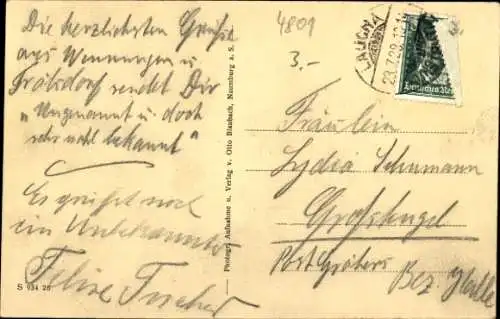 Die herzlichsten Grüße
aus Wennungen u.
sendet Dir
„Ungenannt u. doch
sehr wohl bekannt"
Es grüßt noch
ein Unbekannter
Felixe Fischer
S 034 28
Photogr. Aufnahme u. Verlag v. Otto Blaubach, Naumburg a. S.
4801
3.-
LAUCHA
Deutsches Reich
Fräulein
Lydia Schumann
Großkugel
Post Gröbers
Bez. Halle